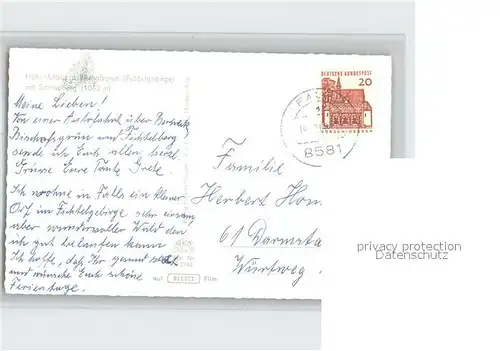 Höhenluftkurort Bischofsgrün (Fichtelgebirge)
mit Schneeberg (1053 m)
Meine Lieben!
Von einer Autofahrt über
Bischofsgrün und Fichtelberg
sende ich Euch allen herzl.
Grüsse Eure Tante Grete.
Ich wohne in Falls ein kleiner
Ort im Fichtelgebirge sehr einsam
aber wundervoller Wald den
ich gut belaufen kann
Ich hoffe, daß Ihr gesund seid
und wünsche Euch schöne
Ferientage.
auf
Film
DEUTSCHE BUNDESPOST
20
LORSCH/HESSEN
FAL
8581
Familie
Herbert Hom
61 Darmsta
Wurtweg
privacy protection
Datenschutz